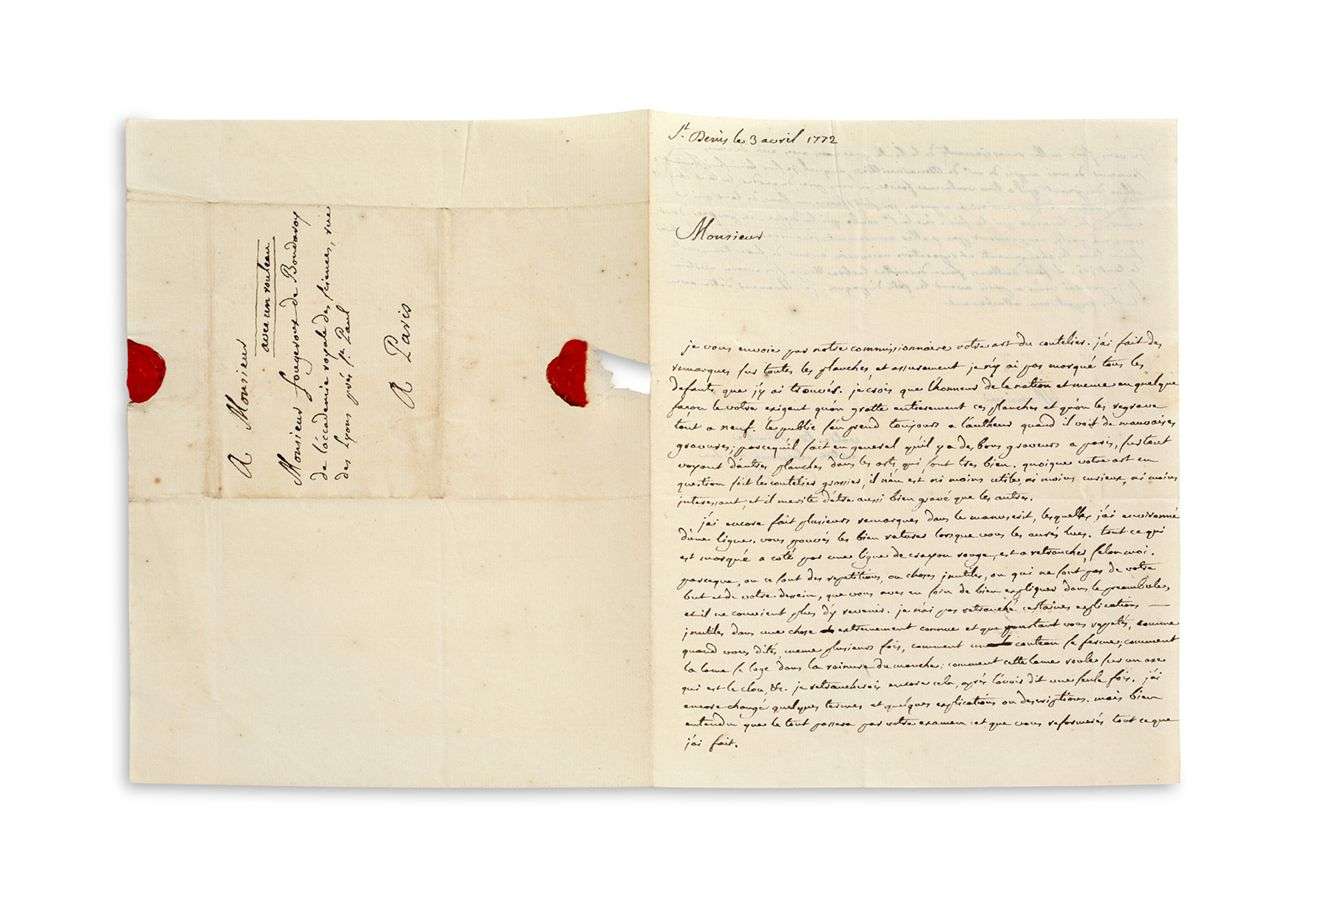 A Monsieur
avec un rouleau
Monsieur fougeroux de Bondaroy
de l'accademie royale des sciences, rue
des Lyons près St. Paul
A Paris
St. Denis le 3 avril 1772
Monsieur
je vous envoie par notre commissionnaire votre art du coutelier. j'ai fait des
remarques sur toutes les planches et assurement je n'y ai pas marqué tous les
defauts que j'y ai trouvés. je crois que l'honneur de la nation et meme en quelque
façon le votre exigent qu'on gratte entierement ces planches et qu'on les regrave
tout a neuf. le public s'en prend toujours a l'autheur quand il voit de mauvaises
gravures; parcequ'il sait en general qu'il y a de bons graveurs a paris, surtout
voyant d'autres planches dans les arts, qui sont tres bien. quoique votre art en
question soit le coutelier grossier, il n'en est ni moins utile, ni moins curieux, ni moins
interessant, et il merite d'etre aussi bien gravé que les autres.
j'ai encore fait plusieurs remarques dans le manuscrit, lesquelles j'ai environné
d'une ligne. vous pouvés les bien raturer lorsque vous les aurés lues. tout ce qui
est marqué a coté par une ligne de crayon rouge, est a retrancher, selon moi.
parceque, ou ce sont des repetitions, ou choses inutiles, ou qui ne sont pas de votre
but et de votre dessein, que vous avés eu soin de bien expliquer dans le preambule,
et il ne convient plus d'y revenir. je n'ai pas retranché certaines explications
inutiles dans une chose extremement connue et que pourtant vous repetés, comme
quand vous dites, meme plusieurs fois, comment un couteau se ferme, comment
la lame se loge dans la rainure du manche; comment cette lame roule sur un axe
qui est le clou, &c. je retrancherois encore cela, après l'avoir dit une seule fois. j'ai
encore changé quelques termes et quelques explications ou descriptions. mais bien
entendu que le tout passera par votre examen et que vous reformerés tout ce que
j'ai fait.